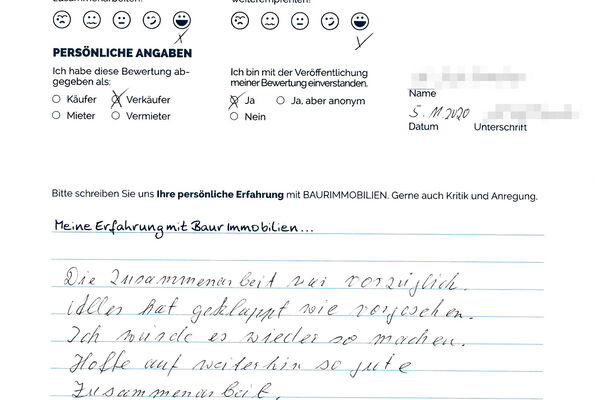 zusammenarbeiten?
weiterempfehlen?
PERSÖNLICHE ANGABEN
Ich habe diese Bewertung ab-
gegeben als:
Käufer Verkäufer
Mieter Vermieter
Ich bin mit der Veröffentlichung
meiner Bewertung einverstanden.
Ja Ja, aber anonym
Nein
Name
5.11.2020
Datum Unterschrift
Bitte schreiben Sie uns Ihre persönliche Erfahrung mit BAURIMMOBILIEN. Gerne auch Kritik und Anregung.
Meine Erfahrung mit Baur Immobilien...
Die Zusammenarbeit war vorzüglich.
Alles hat geklappt wie vorgesehen.
Ich würde es wieder so machen.
Hoffe auf weiterhin so gute
Zusammenarbeit.